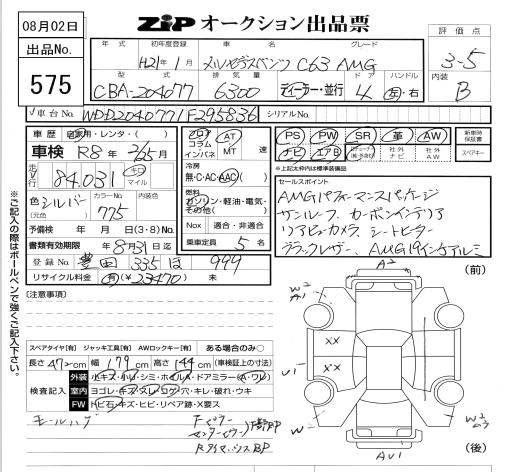 08月02日
ZIP オークション出品票
評価点
出品No.
575
年式 初年度登録 車名 グレード
H21年1月 メルセデスベンツ C63 AMG
3-5
型式 排気量 ドア ハンドル
CBA-204077 6300 ディーラー・並行 4 左・右
内装
B
車台No. WDD2040771F295836 シリアルNo.
車歴 自家用・レンタ・( )
車検 R8年 2/25月
走行 84,031 キロ マイル
色 シルバー カラーNo 775 内装色
(元色)
予備検 年 月 日(3・8)No.
書類有効期限 8月31日迄
フロア コラム インパネ
AT MT 速
冷房
無・C・AC・AAC( )
燃料
ガソリン・軽油・電気・その他( )
Nox 適合・非適合
乗車定員 5 名
登録No. 豊田 335 ほ 999
リサイクル料金 有(¥23470) 未
PS PW SR 革 AW
ナビ エアB 社外ナビ 社外AW
新車時保証書
スペアキー
*上記太枠内は標準装備品
セールスポイント
AMGパフォーマンスパッケージ
サンルーフ、カーボンインテリア
リアビューカメラ、シートヒーター
ブラックレザー、AMG19インチアルミ
[注意事項]
※ご記入の際はボールペンで強くご記入下さい。
スペアタイヤ[有] ジャッキ工具[有] AWロックキー[有] ある場合のみ○
長さ 472cm 幅 179cm 高さ 144cm (車検証上の寸法)
検査記入
外装 小キズ・小U・シミ・ホイルA・ドアミラー(A・ワレ)
室内 ヨゴレ・キズ・スレ・コゲ・穴・キレ・破れ・ウキ
FW トビ石・キズ・ヒビ・リペア跡・X要ス
モールハゲ
(前)
A2
W2
A1
XX
U1
XX
W
W2
AU1
(後)